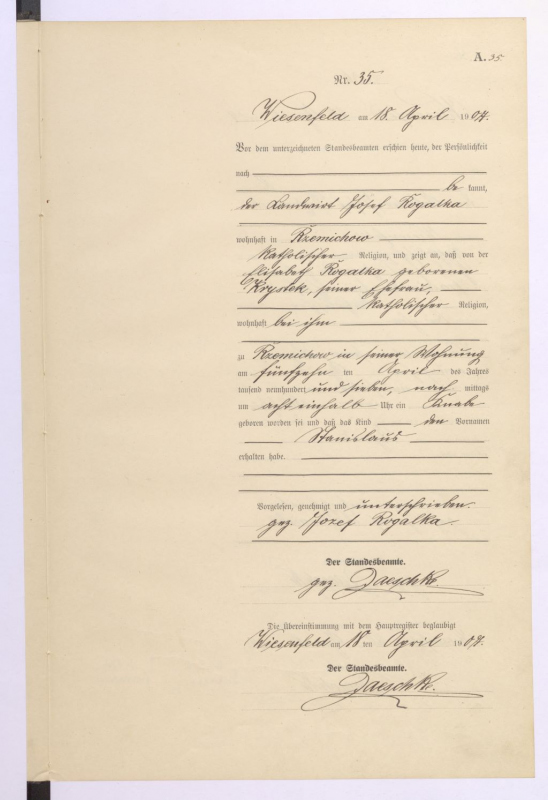 A. 35
Nr. 35.
Wiesenfeld am 18. April 1907.
Vor dem unterzeichneten Standesbeamten erschien heute, der Persönlichkeit
nach
bekannt,
der Landwirt Josef Rogalka
wohnhaft in Rzemichow
katholischer Religion, und zeigt an, daß von der
Elisabeth Rogalka geborenen
Krystek, seiner Ehefrau,
katholischer Religion,
wohnhaft bei ihm
zu Rzemichow in seiner Wohnung
am fünfzehn ten April des Jahres
tausend neunhundert und sieben, nach mittags
um acht einhalb Uhr ein Knabe
geboren worden sei und daß das Kind den Vornamen
Stanislaus
erhalten habe.
Vorgelesen, genehmigt und unterschrieben.
gez. Jozef Rogalka.
Der Standesbeamte.
gez. Daeschke.
Die Übereinstimmung mit dem Hauptregister beglaubigt
Wiesenfeld am 18 ten April 1907.
Der Standesbeamte.
Daeschke.